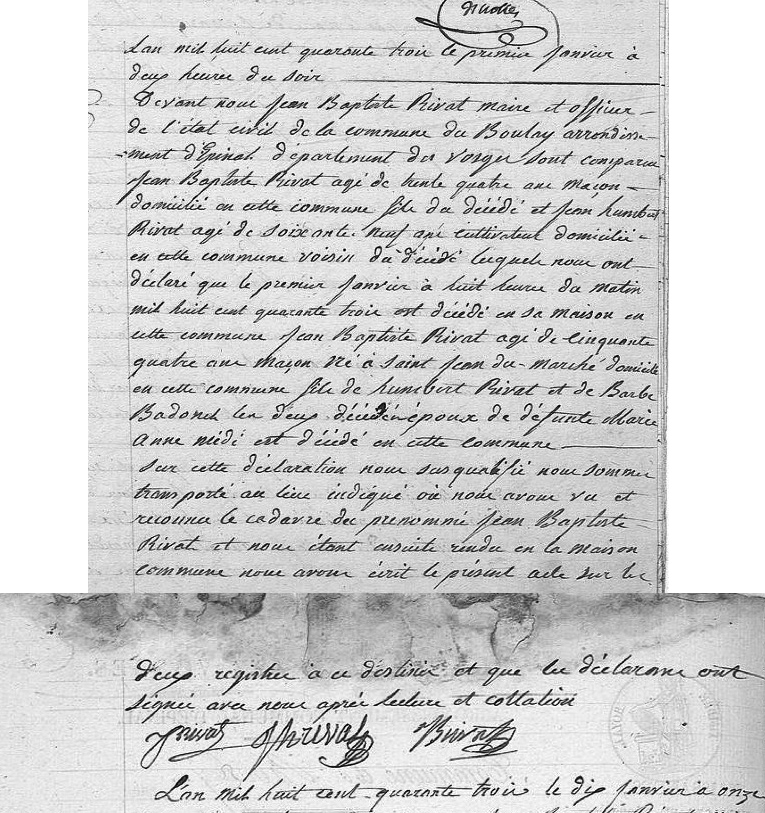 L'an mil huit cent quarante trois le premier Janvier à
deux heures du soir
Devant nous Jean Baptiste Rivat maire et officier
de l'état civil de la commune du Boulay arrondisse-
ment d'Epinal département des Vosges sont comparus
Jean Baptiste Rivat agé de trente quatre ans maçon
domicilié en cette commune fils du décédé et Jean humbert
Rivat agé de soixante neuf ans cultivateur domicilié
en cette commune voisin du décédé lesquels nous ont
déclaré que le premier Janvier à huit heures du matin
mil huit cent quarante trois est décédé en sa maison en
cette commune Jean Baptiste Rivat agé de cinquante
quatre ans maçon né à Saint Jean du marché domicilié
en cette commune fils de humbert Rivat et de Barbe
Badonel les deux décédés époux de défunte Marie
Anne médi est décédé en cette commune
Sur cette déclaration nous susqualifié nous sommes
transporté au lieu indiqué où nous avons vu et
reconnu le cadavre du prenommé Jean Baptiste
Rivat et nous étant ensuite rendu en la maison
commune nous avons écrit le présent acte sur les
deux registres à ce destinés et que les déclarans ont
signés avec nous après lecture et collation
JRivat JhRivat JBRivat
L'an mil huit cent quarante trois le dix Janvier à onze